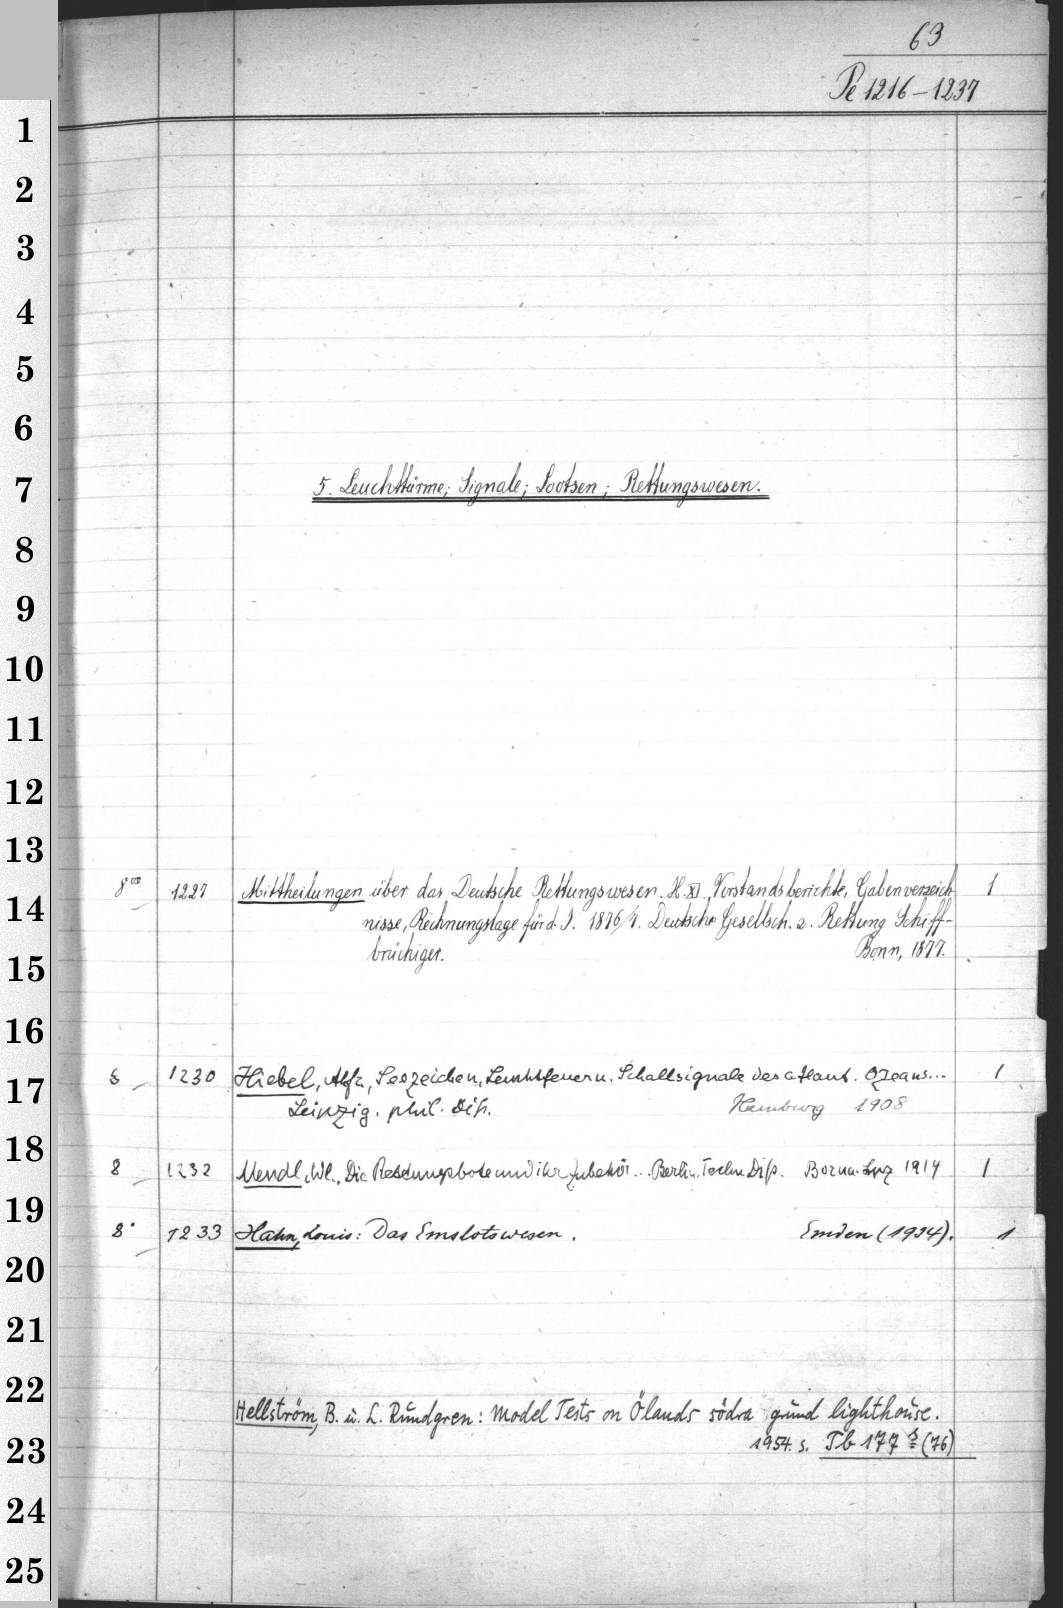 63
Pe 1216-1237
1
2
3
4
5
6
5. Leuchttürme; Signale; Lootsen; Rettungswesen.
7
8
9
10
11
12
13
8vo 1227 Mittheilungen über das Deutsche Rettungswesen. H. XI. Vorstandsberichte, Gabenverzeich 1
14 nisse, Rechnungslage für d. J. 1876/7. Deutsche Gesellsch. z. Rettung Schiff-
15 brüchiger. Bonn, 1877.
16
17 8 1230 Hiebel, Alfr., Seezeichen, Leuchtfeuer u. Schallsignale des atlant. Ozeans... 1
Leipzig. phil. Diss. Hamburg 1908
18 8 1232 Mendl, Wl., Die Rettungsbote und ihr Zubehör... Berlin, Techn Diss. Borna-Lpz 1914 1
19 8° 1233 Hahn, Louis: Das Emslotswesen. Emden (1934). 1
20
21
22
Hellström, B. u. L. Rundgren: Model Tests on Ölands södra grund lighthouse.
23 1954. s. Tb 177 (76)
24
25